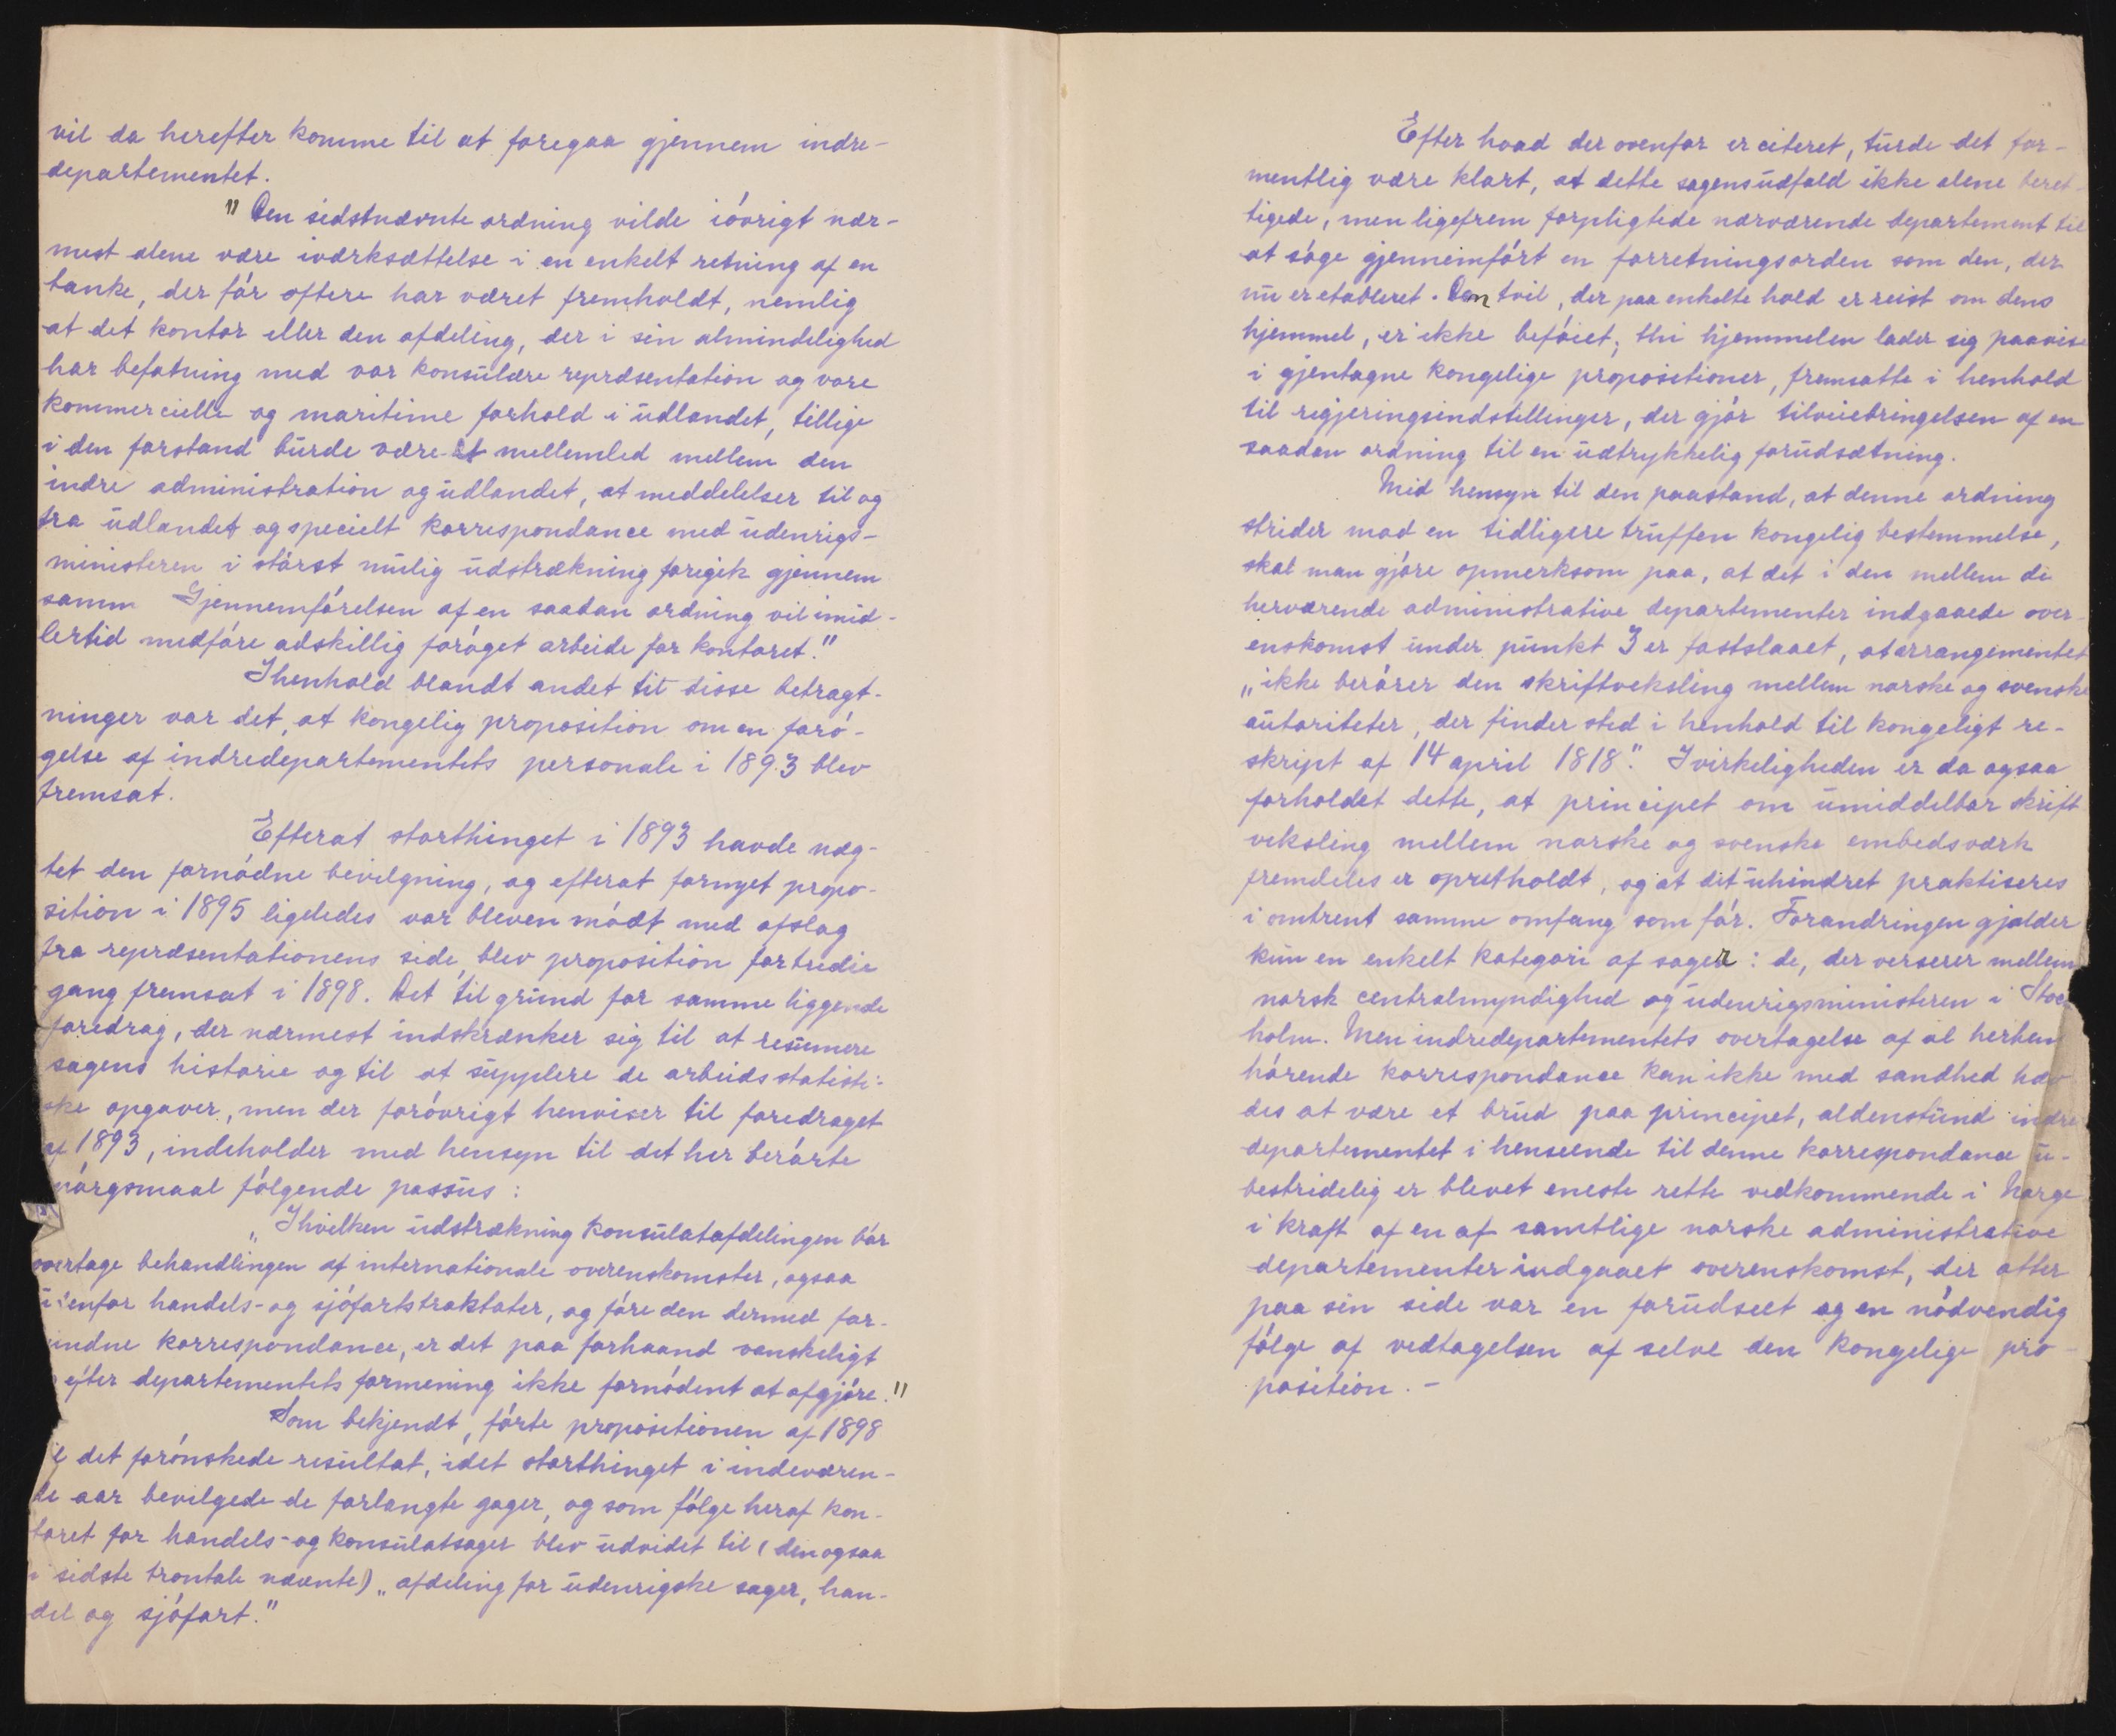 vil da herefter komme til at foregaa gjennem indre-
departementet.
"Den sidstnævnte ordning vilde iøvrigt nær-
mest alene være iværksættelse i en enkelt retning af en
tanke, der før oftere har været fremholdt, nemlig
at det kontor eller den afdeling, der i sin almindelighed
har befatning med vor konsulære repræsentation og vore
kommercielle og maritime forhold i udlandet, tillige
i den forstand burde være et mellemled mellem den
indre administration og udlandet, at meddelelser til og
fra udlandet og specielt korrespondance med udenrigs-
ministeren i størst mulig udstrækning foregik gjennem
samm Gjennemførelsen af en saadan ordning vil imid-
lertid medføre adskillig forøget arbeide for kontoret."
I henhold blandt andet til disse betragt-
ninger var det, at kongelig proposition om en forø-
gelse af indredepartementets personale i 1893 blev
fremsat.
Efterat storthinget i 1893 havde næg-
tet den fornødne bevilgning, og efterat fornyet propo-
sition i 1895 ligeledes var bleven mødt med afslag
fra repræsentationens side, blev proposition for tredie
gang fremsat i 1898. Det til grund for samme liggende
foredrag, der nærmest indskrænker sig til at resumere
sagens historie og til at supplere de arbeidsstatisti-
ske opgaver, men der forøvrigt henviser til foredraget
af 1893, indeholder med hensyn til det her berørte
spørgsmaal følgende passus:
„I hvilken udstrækning konsulatafdelingen bør
overtage behandlingen af internationale overenskomster, ogsaa
udenfor handels- og sjøfartstraktater, og føre den dermed for-
undne korrespondance, er det paa forhaand vanskeligt
efter departementets formening ikke fornødent at afgjøre."
Som bekjendt, førte propositionen af 1898
il det forønskede resultat, idet storthinget i indeværen-
de aar bevilgede de forlangte gager, og som følge heraf kon-
toret for handels- og konsulatsager blev udvidet til (den ogsaa
i sidste trontale nævnte) „afdeling for udenrigske sager, han-
del og sjøfart."
Efter hvad der ovenfor er citeret, turde det for-
mentlig være klart, at dette sagens udfald ikke alene beret-
tigede, men ligefrem forpligtede nærværende departement til
at søge gjennemført en forretningsorden som den, der
nu er etableret. Den tvil, der paa enkelte hold er reist om dens
hjemmel, er ikke beføiet; thi hjemmelen lader sig paavise
i gjentagne kongelige propositioner, fremsatte i henhold
til regjeringsindstillinger, der gjør tilveiebringelsen af en
saadan ordning til en udtrykkelig forudsætning.
Med hensyn til den paastand, at denne ordning
strider mod en tidligere truffen kongelig bestemmelse,
skal man gjøre opmerksom paa, at det i den mellem de
herværende administrative departementer indgaaede over-
enskomst under punkt 3 er fastslaaet, at arrangementet
„ikke berører den skriftveksling mellem norske og svenske
autoriteter, der finder sted i henhold til kongeligt re-
skript af 14 april 1818." I virkeligheden er da ogsaa
forholdet dette, at principet om umiddelbar skrift
veksling mellem norske og svenske embedsværk
fremdeles er opretholdt, og at det uhindret praktiseres
i omtrent samme omfang som før. Forandringen gjælder
kun en enkelt kategori af sager: de, der verserer mellem
norsk centralmyndighed og udenrigsministeren i Stoc
holm. Men indredepartementets overtagelse af al herhen
hørende korrespondance kan ikke med sandhed hæv
des at være et brud paa principet, aldenstund indre
departementet i henseende til denne korrespondance u-
bestridelig er blevet eneste rette vedkommende i Norge
i kraft af en af samtlige norske administrative
departementer indgaaet overenskomst, der atter
paa sin side var en forudseet og en nødvendig
følge af vedtagelsen af selve den kongelige pro-
position. -